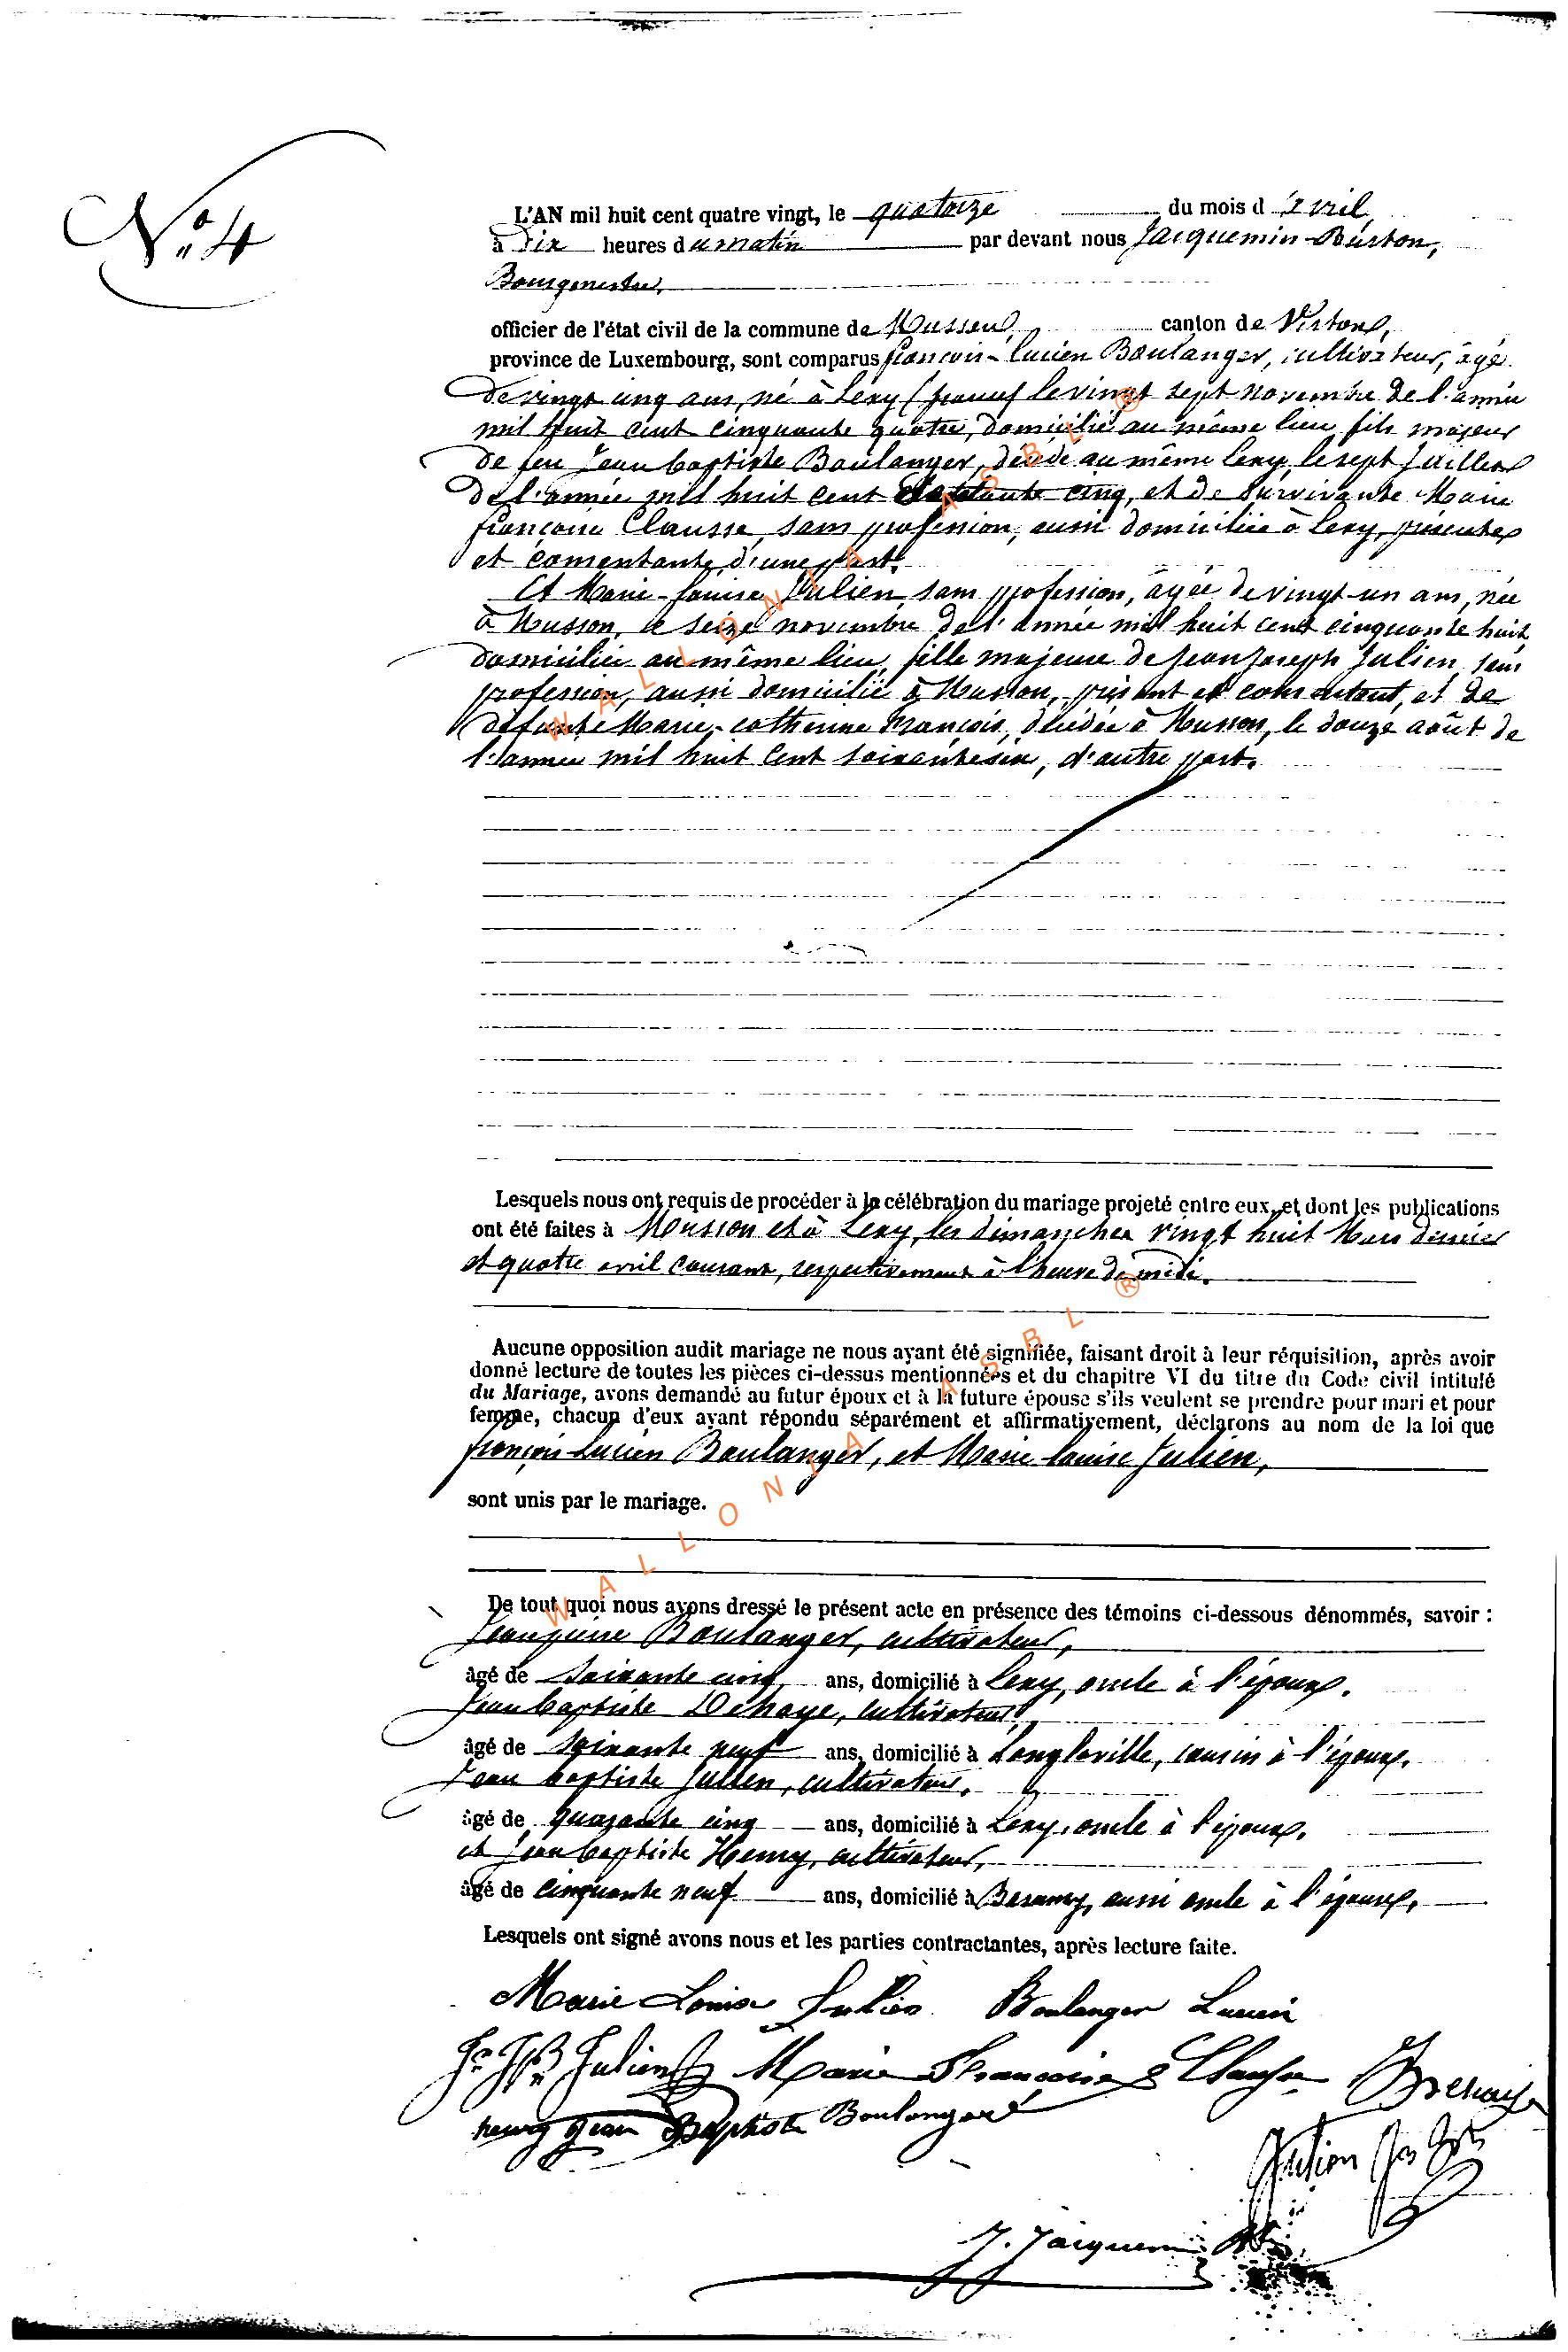 N° 4
L'AN mil huit cent quatre vingt, le quatorze du mois d'avril,
à Dix heures du matin par devant nous Jacquemin-Buston,
Bourgmestre,
officier de l'état civil de la commune de Musson, canton de Virton,
province de Luxembourg, sont comparus françois-Lucien Boulanger, cultivateur, âgé
de vingt cinq ans, né à Lexy (france) le vingt sept novembre de l'année
mil huit cent cinquante quatre, domicilié au même lieu, fils majeur
de feu Jean baptiste Boulanger, décédé au même Lexy, le sept Juillet
de l'année mil huit cent cinq, et de survivante Marie
françoise Clausse, sans profession, aussi domiciliée à Lexy, présente
et consentante, d'une part.
Et Marie-Louise Julien, sans profession, âgée de vingt-un ans, née
à Musson, le seize novembre de l'année mil huit cent cinquante huit
domiciliée au même lieu, fille majeure de Jean Joseph Julien, sans
profession, aussi domicilié à Musson, présent et consentant, et de
défunte Marie-catherine François, décédée à Musson, le douze août de
l'année mil huit cent soixante six, d'autre part.
Lesquels nous ont requis de procéder à la célébration du mariage projeté entre eux, et dont les publications
ont été faites à Musson et à Lexy, les dimanches vingt huit Mars dernier
et quatre avril courant, respectivement à l'heure de midi.
Aucune opposition audit mariage ne nous ayant été signifiée, faisant droit à leur réquisition, après avoir
donné lecture de toutes les pièces ci-dessus mentionnées et du chapitre VI du titre du Code civil intitulé
du Mariage, avons demandé au futur époux et à la future épouse s'ils veulent se prendre pour mari et pour
femme, chacun d'eux ayant répondu séparément et affirmativement, déclarons au nom de la loi que
françois-Lucien Boulanger, et Marie Louise Julien,
sont unis par le mariage.
De tout quoi nous avons dressé le présent acte en présence des témoins ci-dessous dénommés, savoir :
Jean pierre Boulanger, cultivateur,
âgé de soixante cinq ans, domicilié à Lexy, oncle à l'époux.
Jean baptiste Dehaye, cultivateur,
âgé de soixante neuf ans, domicilié à Longlaville, cousin à l'époux.
Jean baptiste Julien, cultivateur,
âgé de quarante cinq ans, domicilié à Lexy, oncle à l'époux.
et Jean baptiste Henry, cultivateur,
âgé de cinquante neuf ans, domicilié à aussi oncle à l'époux,
Lesquels ont signé avons nous et les parties contractantes, après lecture faite.
Marie Louise Julien Boulanger Lucien
Julien Marie Francoise Clausse Dehaye
henry Jean Baptiste Boulanger
Julien
J. Jacquemin
WALLONIA ASBL ®
WALLONIA ASBL ®